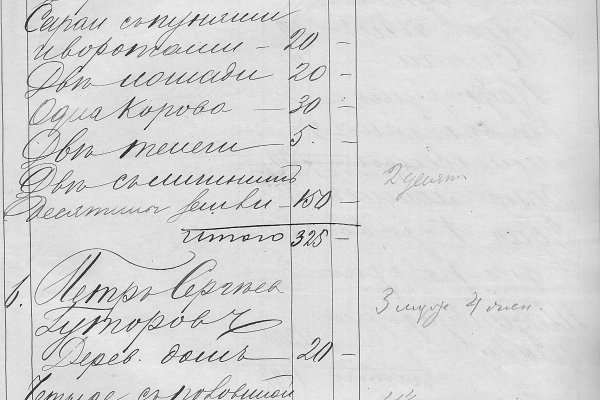 Сарай съ пуняти
и воротами — 20 —
Двѣ лошади 20 —
Одна Корова — 30 —
Двѣ телеги 5. —
Двѣ съ
десятины земли — 150 — 2 десят
Итого 325 —
6. Петръ Сергѣев
Гуторовъ 3 муж 4 жен.
Дерев. домъ — 20 —